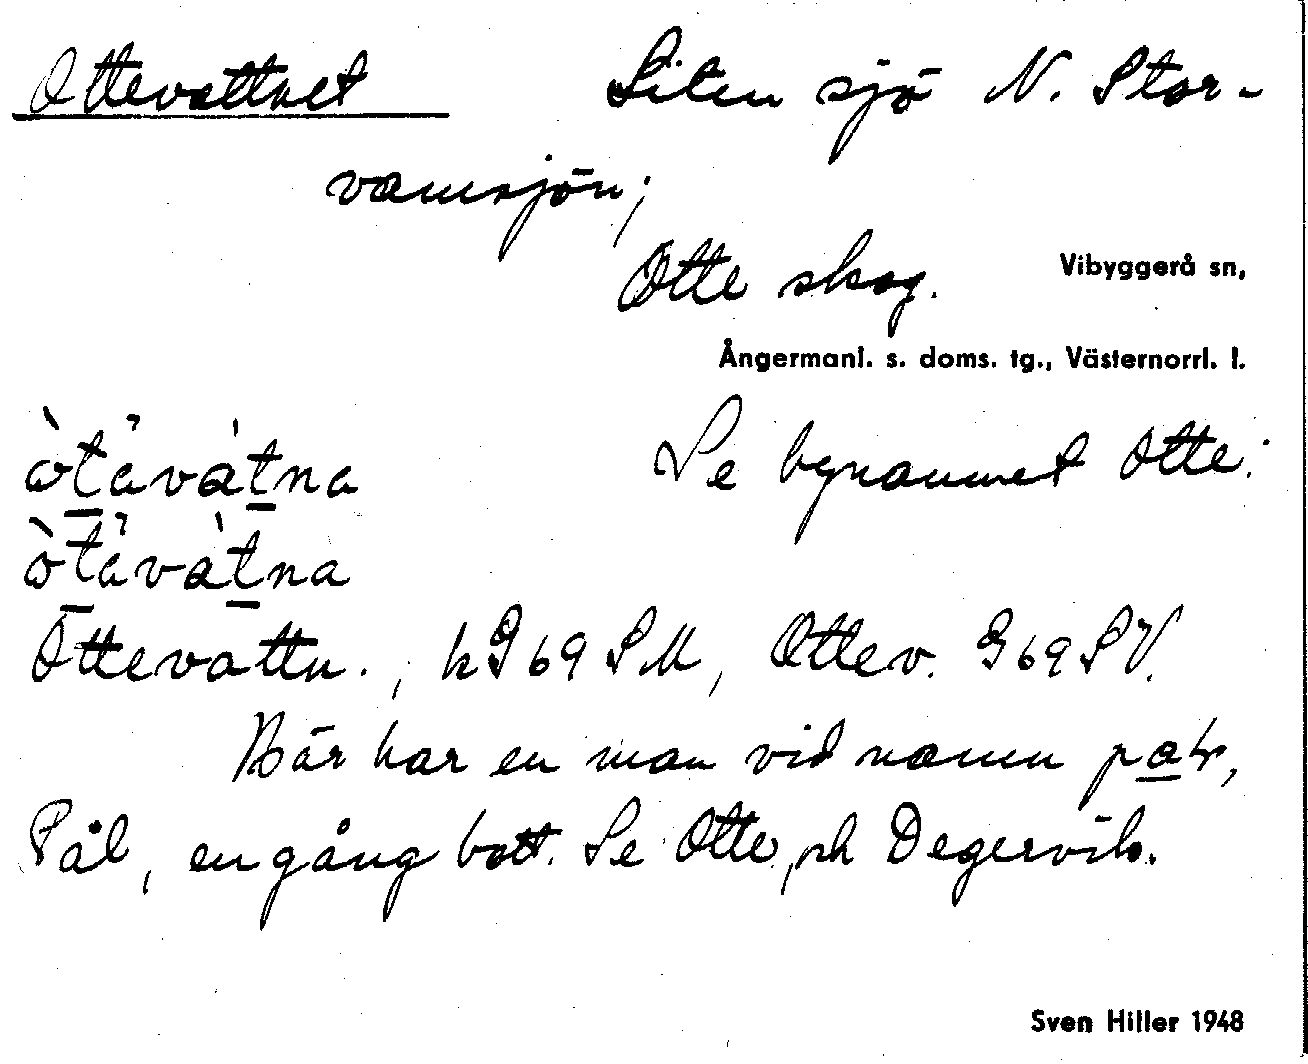 Ottevattnet Liten sjö N. Stor-
vamsjön;
Otte skog. Vibyggerå sn,
Ångermanl. s. doms. tg., Västernorrl. l.
òtt̀ävàtna Se bynamnet Otte.
òtävàtna
Ottevattn., k969SM, Ottev. 969SV.
Här har en man vid namn
Pål, en gång bott. Se Otte, Degervik.
Sven Hiller 1948